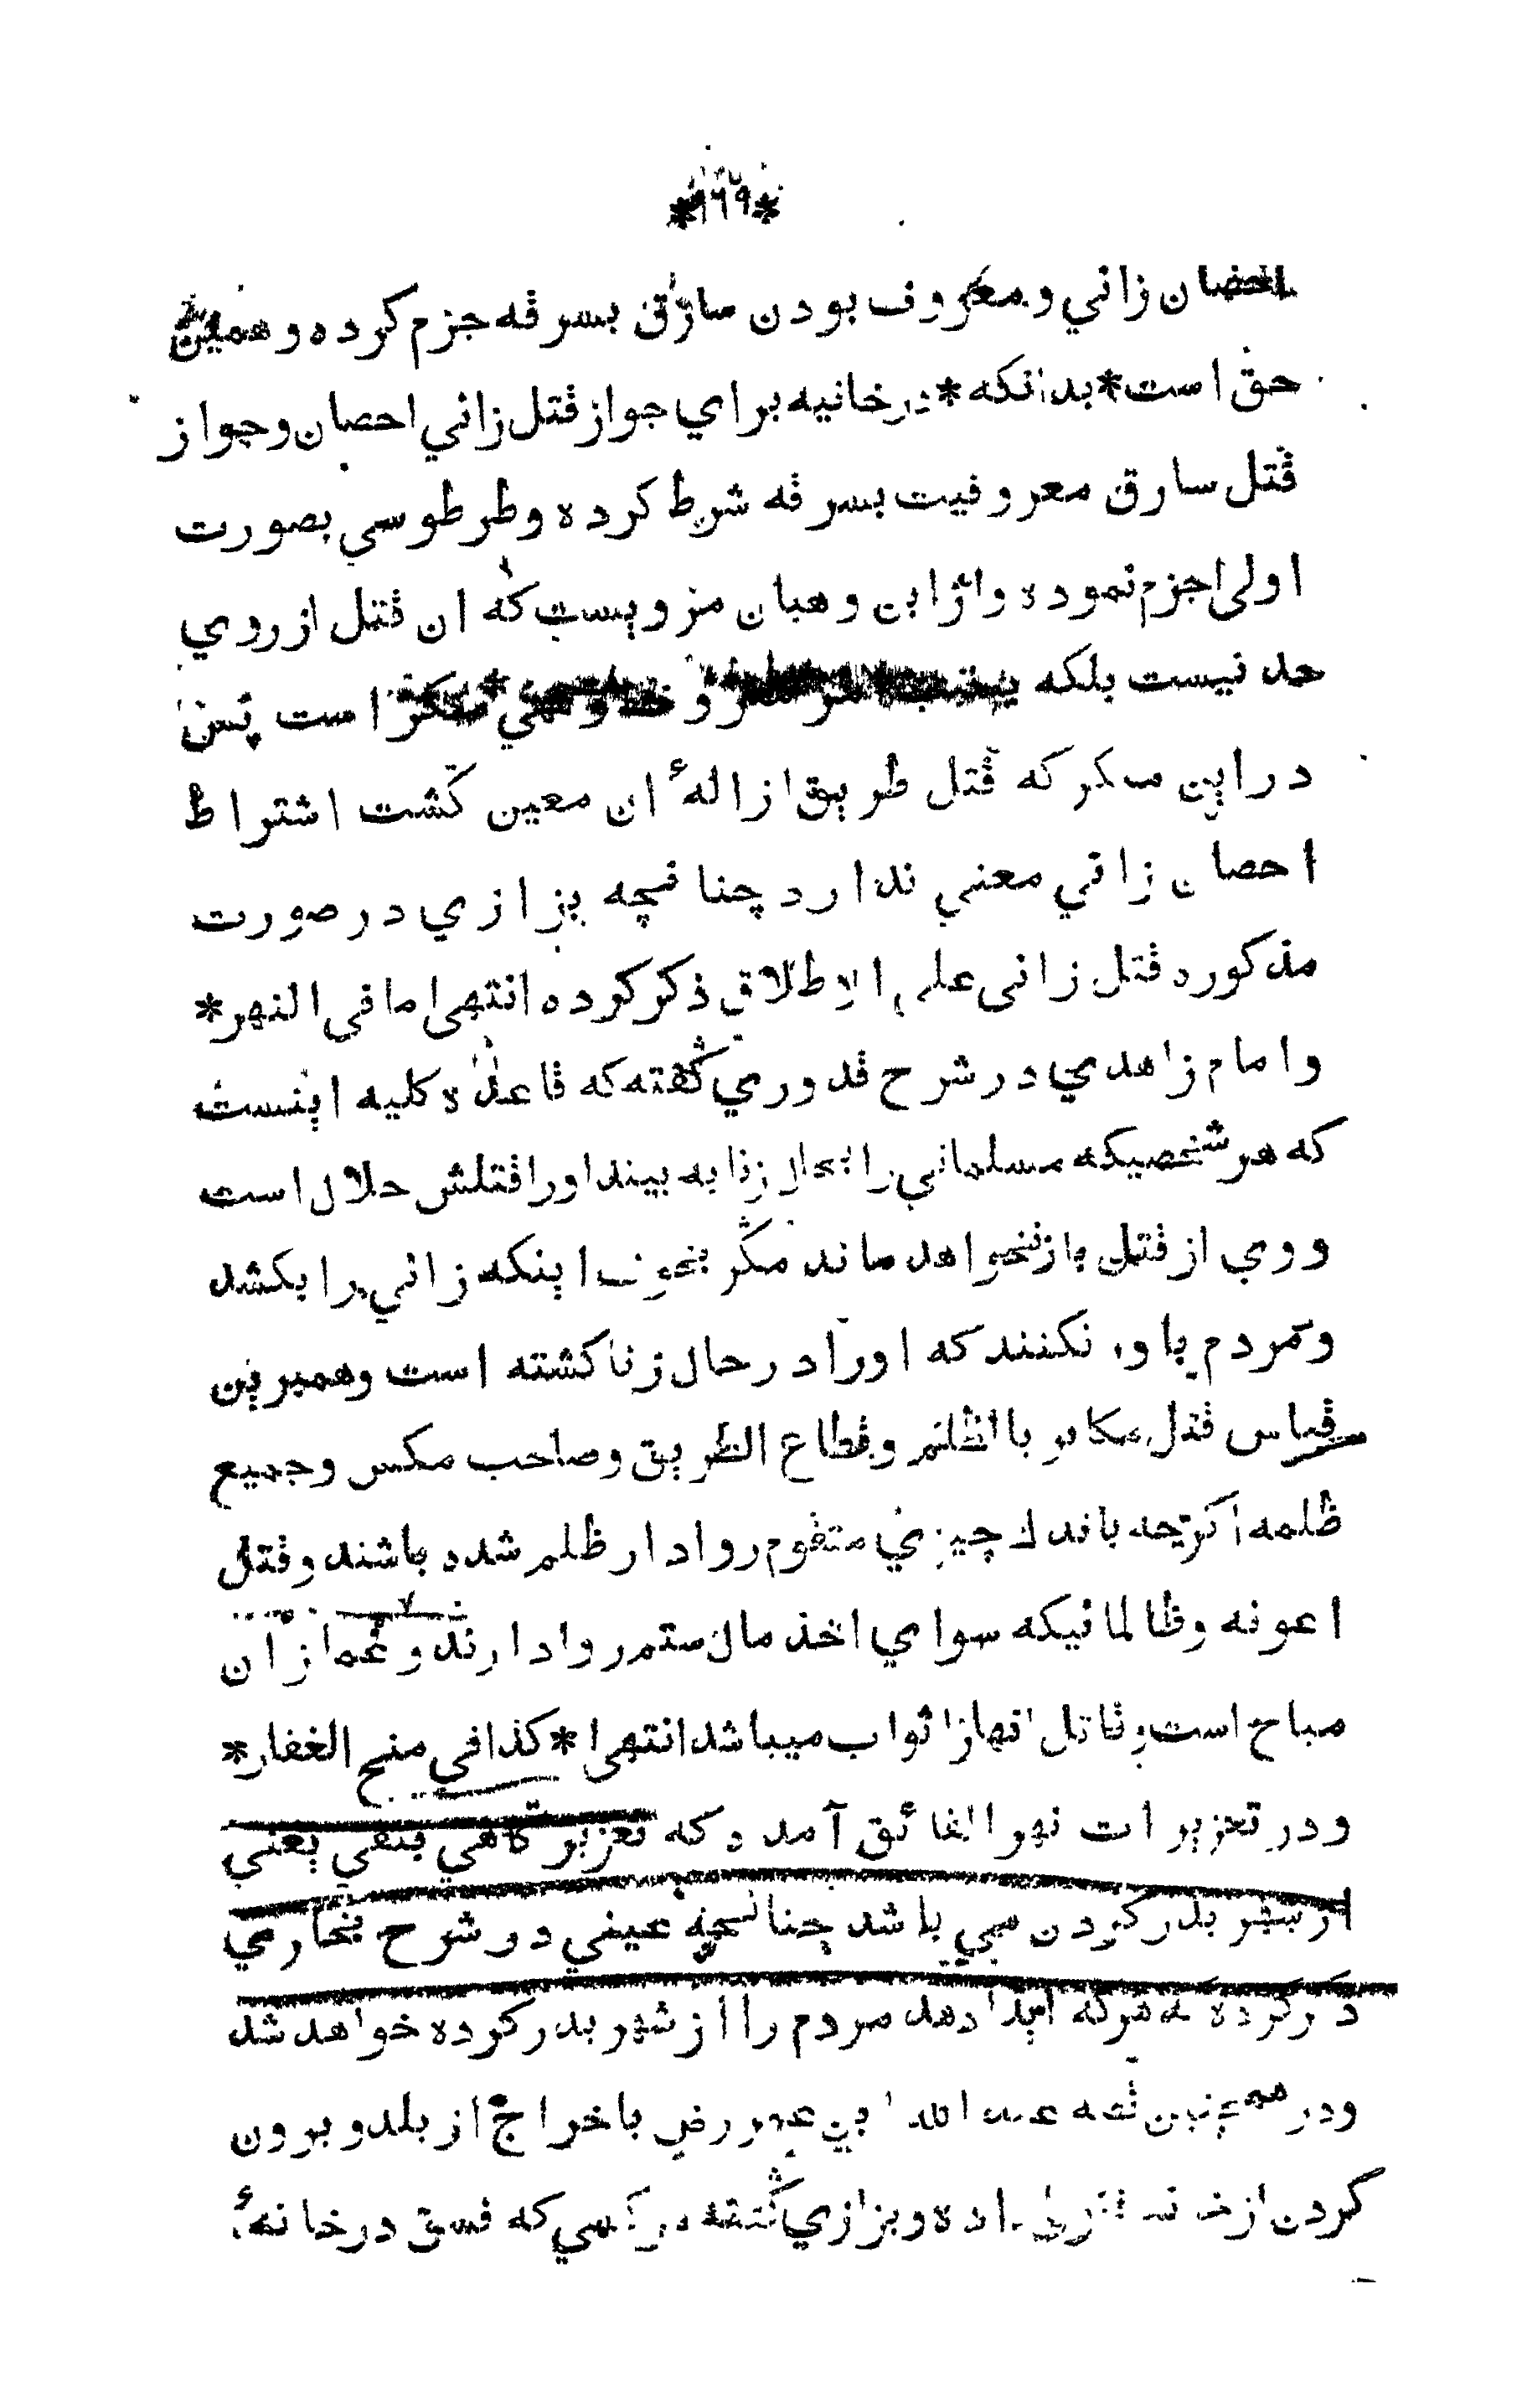 *١٦٩*
احصان زاني و معروف بودن سارق بسرقه جزم كرده و همين
حق است * بدانكه * در خانيه براي جواز قتل زاني احصان و جواز
قتل سارق معروفيت بسرقه شرط كرده و طرطوسي بصورت
اولى اجزم نموده و از ابن وهبان مرويست كه ان قتل از روي
حد نيست بلكه است پس
دراين منكر كه قتل طريق ازالهٔ ان معين كشت اشتراط
احصان زاني معني ندارد چنانچه بزازي در صورت
مذكوره قتل زانى على الاطلاق ذكر كرده انتهى ما في النهر *
و امام زاهدي در شرح قدوري گفته كه قاعده كليه اينست
كه هر شخصيكه مسلماني را بحال زنا به بيند اورا قتلش حلال است
و وي از قتل باز نخواهد ماند مگر بخوف اينكه زاني را بكشد
و مردم باور نكنند كه اورا در حال زنا كشته است و همبرين
قياس قتل مكابر بالظلم و قطاع الطريق و صاحب مكس و جميع
ظلمه اكرچه باندك چيزي متقوم روادار ظلم شده باشند و قتل
اعونه و ظالمانيكه سواي اخذ مال ستم روادارند و غمازان
مباح است و قاتل انهارا ثواب ميباشد انتهى * كذا في منح الغفار *
و در تعزيرات نهر الفائق آمده كه تعزير گاهي بنفي يعني
از شهر بدر كردن مي باشد چنانچه عيني در شرح بخاري
ذكر كرده كه هركه ايذا دهد مردم را از شهر بدر كرده خواهد شد
و در همچنين قصه عبد الله ابن عمر رض باخراج از بلد و برون
كردن از خانه داده و بزازي گفته هر كسي كه فسق در خانهٔ